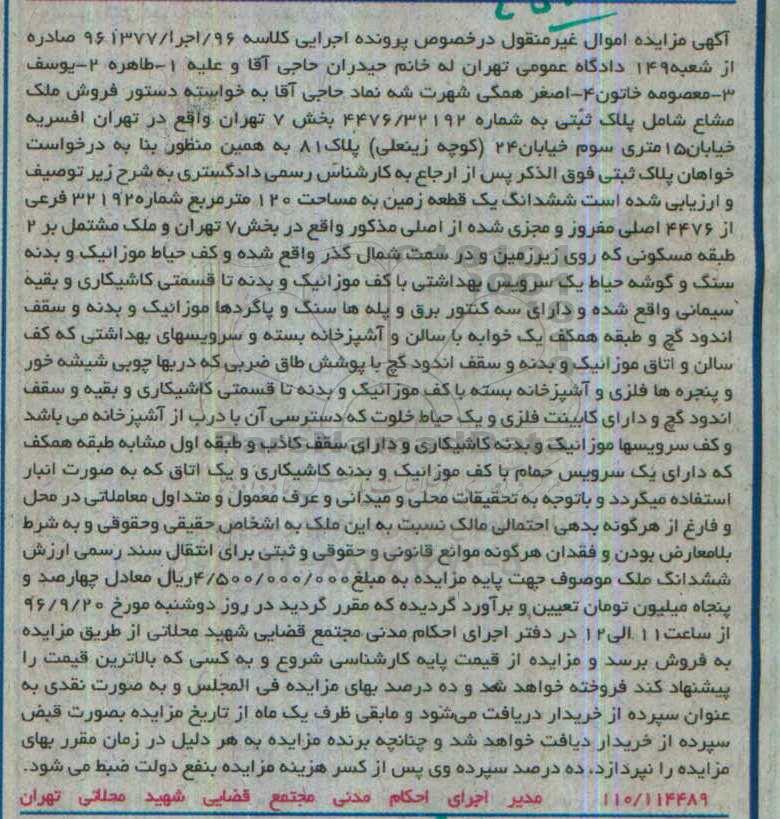 آگهی مزایده اموال غیرمنقول درخصوص پرونده اجرایی کلاسه ۹۶/اجرا/۹۶۱۳۷۷ صادره
از شعبه۱۴۹ دادگاه عمومی تهران له خانم حیدران حاجی آقا و علیه ۱-طاهره ۲-یوسف
۳-معصومه خاتون۴-اصغر همگی شهرت شه نماد حاجی آقا به خواسته دستور فروش ملک
مشاع شامل پلاک ثبتی به شماره ۴۴۷۶/۳۲۱۹۲ بخش ۷ تهران واقع در تهران افسریه
خیابان۱۵متری سوم خیابان۲۴ (کوچه زینعلی) پلاک۸۱ به همین منظور بنا به درخواست
خواهان پلاک ثبتی فوق الذکر پس از ارجاع به کارشناس رسمی دادگستری به شرح زیر توصیف
و ارزیابی شده است ششدانگ یک قطعه زمین به مساحت ۱۲۰ مترمربع شماره۳۲۱۹۲ فرعی
از ۴۴۷۶ اصلی مفروز و مجزی شده از اصلی مذکور واقع در بخش۷ تهران و ملک مشتمل بر ۲
طبقه مسکونی که روی زیرزمین و در سمت شمال گذر واقع شده و کف حیاط موزائیک و بدنه
سنگ و گوشه حیاط یک سرویس بهداشتی با کف موزائیک و بدنه تا قسمتی کاشیکاری و بقیه
سیمانی واقع شده و دارای سه کنتور برق و پله ها سنگ و پاگردها موزائیک و بدنه و سقف
اندود گچ و طبقه همکف یک خوابه با سالن و آشپزخانه بسته و سرویسهای بهداشتی که کف
سالن و اتاق موزائیک و بدنه و سقف اندود گچ با پوشش طاق ضربی که دربها چوبی شیشه خور
و پنجره ها فلزی و آشپزخانه بسته با کف موزائیک و بدنه تا قسمتی کاشیکاری و بقیه و سقف
اندود گچ و دارای کابینت فلزی و یک حیاط خلوت که دسترسی آن با درب از آشپزخانه می باشد
و کف سرویسها موزائیک و بدنه کاشیکاری و دارای سقف کاذب و طبقه اول مشابه طبقه همکف
که دارای یک سرویس حمام با کف موزائیک و بدنه کاشیکاری و یک اتاق که به صورت انبار
استفاده میگردد و باتوجه به تحقیقات محلی و میدانی و عرف معمول و متداول معاملاتی در محل
و فارغ از هرگونه بدهی احتمالی مالک نسبت به این ملک به اشخاص حقیقی وحقوقی و به شرط
بلامعارض بودن و فقدان هرگونه موانع قانونی و حقوقی و ثبتی برای انتقال سند رسمی ارزش
ششدانگ ملک موصوف جهت پایه مزایده به مبلغ۴/۵۰۰/۰۰۰/۰۰۰ریال معادل چهارصد و
پنجاه میلیون تومان تعیین و برآورد گردیده که مقرر گردید در روز دوشنبه مورخ ۹۶/۹/۲۰
از ساعت۱۱ الی۱۲ در دفتر اجرای احکام مدنی مجتمع قضایی شهید محلاتی از طریق مزایده
به فروش برسد و مزایده از قیمت پایه کارشناسی شروع و به کسی که بالاترین قیمت را
پیشنهاد کند فروخته خواهد شد و ده درصد بهای مزایده فی المجلس و به صورت نقدی به
عنوان سپرده از خریدار دریافت می‌شود و مابقی ظرف یک ماه از تاریخ مزایده بصورت قبض
سپرده از خریدار دیافت خواهد شد و چنانچه برنده مزایده به هر دلیل در زمان مقرر بهای
مزایده را نپردازد، ده درصد سپرده وی پس از کسر هزینه مزایده بنفع دولت ضبط می شود.
۱۱۰/۱۱۴۴۸۹ مدیر اجرای احکام مدنی مجتمع قضایی شهید محلاتی تهران